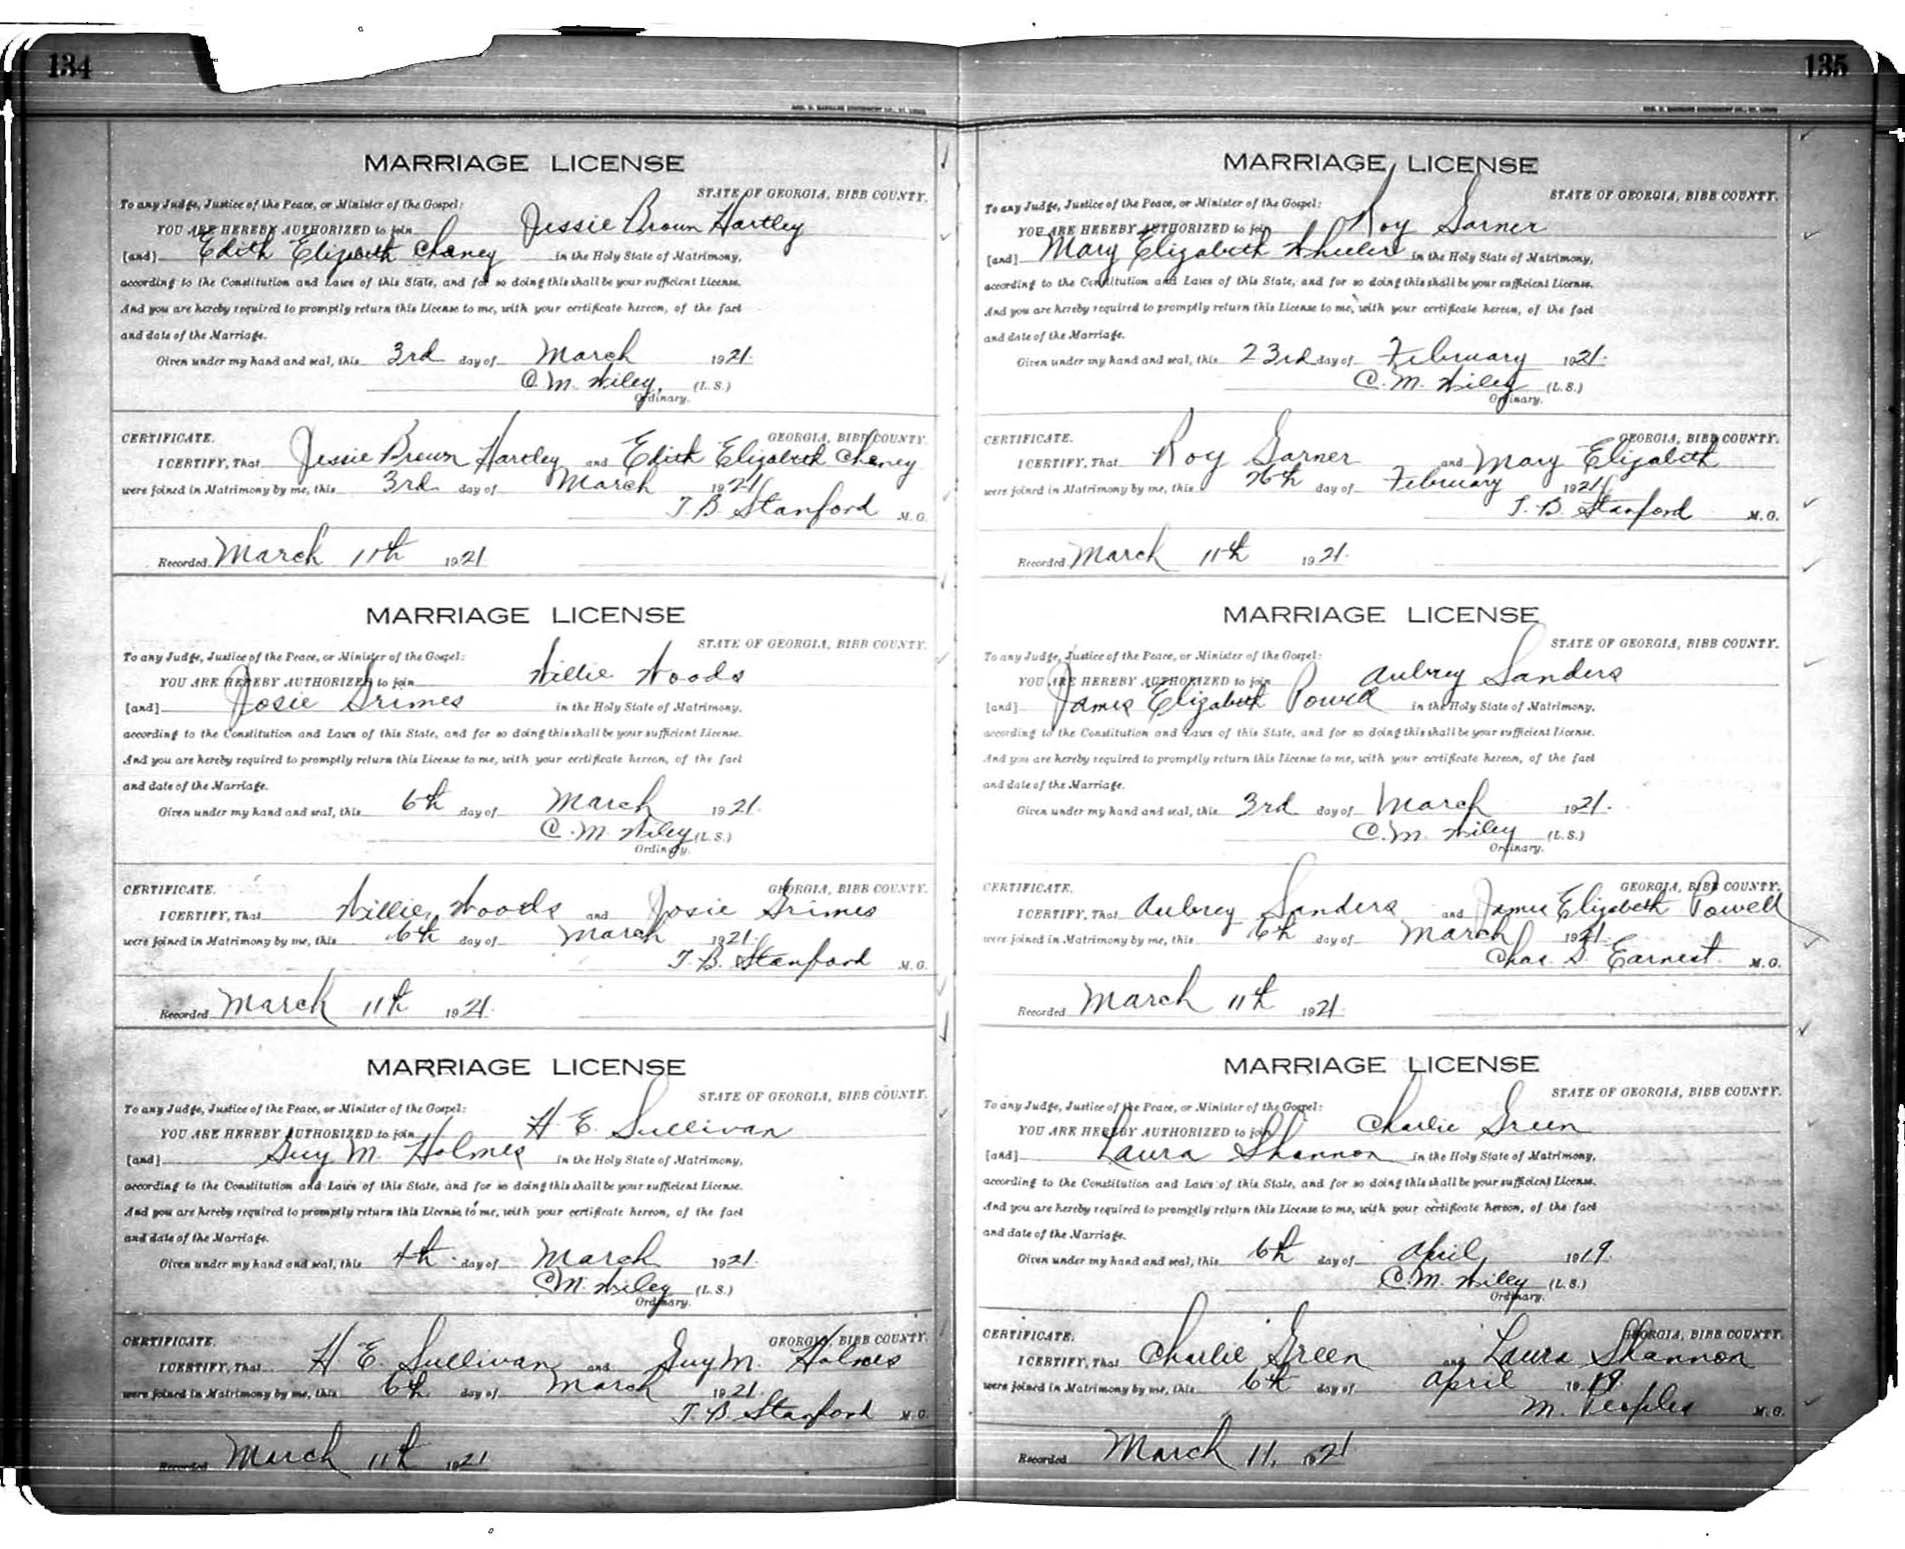 134
MARRIAGE LICENSE
STATE OF GEORGIA, BIBB COUNTY.
To any Judge, Justice of the Peace, or Minister of the Gospel:
YOU ARE HEREBY AUTHORIZED to join Jessie Brown Hartley
[and] Edith Elizabeth Chaney in the Holy State of Matrimony,
according to the Constitution and Laws of this State, and for so doing this shall be your sufficient License.
And you are hereby required to promptly return this License to me, with your certificate hereon, of the fact
and date of the Marriage.
Given under my hand and seal, this 3rd day of March 1921.
C. M. Wiley, (L. S.)
Ordinary.
CERTIFICATE. GEORGIA, BIBB COUNTY.
I CERTIFY, That Jessie Brown Hartley and Edith Elizabeth Chaney
were joined in Matrimony by me, this 3rd day of March 1921
T. B. Stanford M. G.
Recorded March 11th 1921
MARRIAGE LICENSE
STATE OF GEORGIA, BIBB COUNTY.
To any Judge, Justice of the Peace, or Minister of the Gospel:
YOU ARE HEREBY AUTHORIZED to join Willie Woods
[and] Josie Grimes in the Holy State of Matrimony,
according to the Constitution and Laws of this State, and for so doing this shall be your sufficient License.
And you are hereby required to promptly return this License to me, with your certificate hereon, of the fact
and date of the Marriage.
Given under my hand and seal, this 6th day of March 1921.
C. M. Wiley (L. S.)
Ordinary.
CERTIFICATE. GEORGIA, BIBB COUNTY.
I CERTIFY, That Willie Woods and Josie Grimes
were joined in Matrimony by me, this 6th day of March 1921.
T. B. Stanford M. G.
Recorded March 11th 1921.
MARRIAGE LICENSE
STATE OF GEORGIA, BIBB COUNTY.
To any Judge, Justice of the Peace, or Minister of the Gospel:
YOU ARE HEREBY AUTHORIZED to join H. E. Sullivan
[and] Guy M. Holmes in the Holy State of Matrimony,
according to the Constitution and Laws of this State, and for so doing this shall be your sufficient License.
And you are hereby required to promptly return this License to me, with your certificate hereon, of the fact
and date of the Marriage.
Given under my hand and seal, this 4th day of March 1921.
C. M. Wiley (L. S.)
Ordinary.
CERTIFICATE. GEORGIA, BIBB COUNTY.
I CERTIFY, That H. E. Sullivan and Guy M. Holmes
were joined in Matrimony by me, this 6th day of March 1921.
T. B. Stanford M. G.
Recorded March 11th 1921
135
MARRIAGE LICENSE
STATE OF GEORGIA, BIBB COUNTY.
To any Judge, Justice of the Peace, or Minister of the Gospel:
YOU ARE HEREBY AUTHORIZED to join Roy Garner
[and] Mary Elizabeth Wheeler in the Holy State of Matrimony,
according to the Constitution and Laws of this State, and for so doing this shall be your sufficient License.
And you are hereby required to promptly return this License to me, with your certificate hereon, of the fact
and date of the Marriage.
Given under my hand and seal, this 23rd day of February 1921.
C. M. Wiley (L. S.)
Ordinary.
CERTIFICATE. GEORGIA, BIBB COUNTY.
I CERTIFY, That Roy Garner and Mary Elizabeth
were joined in Matrimony by me, this 26th day of February 1921
T. B. Stanford M. G.
Recorded March 11th 1921.
MARRIAGE LICENSE
STATE OF GEORGIA, BIBB COUNTY.
To any Judge, Justice of the Peace, or Minister of the Gospel:
YOU ARE HEREBY AUTHORIZED to join Aubrey Sanders
[and] James Elizabeth Powell in the Holy State of Matrimony,
according to the Constitution and Laws of this State, and for so doing this shall be your sufficient License.
And you are hereby required to promptly return this License to me, with your certificate hereon, of the fact
and date of the Marriage.
Given under my hand and seal, this 3rd day of March 1921.
C. M. Wiley (L. S.)
Ordinary.
CERTIFICATE. GEORGIA, BIBB COUNTY.
I CERTIFY, That Aubrey Sanders and James Elizabeth Powell
were joined in Matrimony by me, this 6th day of March 1921.
Chas. S. Earnest. M. G.
Recorded March 11th 1921.
MARRIAGE LICENSE
STATE OF GEORGIA, BIBB COUNTY.
To any Judge, Justice of the Peace, or Minister of the Gospel:
YOU ARE HEREBY AUTHORIZED to join Charlie Green
[and] Laura Shannon in the Holy State of Matrimony,
according to the Constitution and Laws of this State, and for so doing this shall be your sufficient License.
And you are hereby required to promptly return this License to me, with your certificate hereon, of the fact
and date of the Marriage.
Given under my hand and seal, this 6th day of April, 1919.
C. M. Wiley (L. S.)
Ordinary.
CERTIFICATE. GEORGIA, BIBB COUNTY.
I CERTIFY, That Charlie Green and Laura Shannon
were joined in Matrimony by me, this 6th day of April 1919.
M. Peoples M. G.
Recorded March 11, 1921